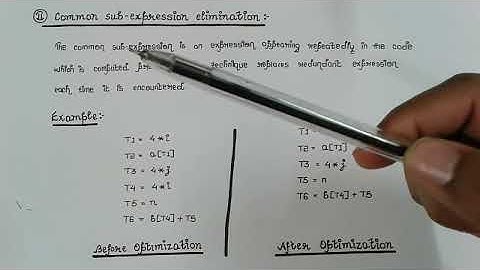 II Common sub-expression elimination:-
The common sub-expression is an expression appearing repeatedly in the code
which is computed technique replaces redundant expression
each time it is encountered
Example:-
T1 = 4*i
T2 = a[T1]
T3 = 4*j
T4 = 4*i
T5 = n
T6 = b[T4]+T5
Before Optimization
T1 = 4*i
T2 = a[T1]
T3 = 4*j
T5 = n
T6 = b[T4]+T5
After Optimization